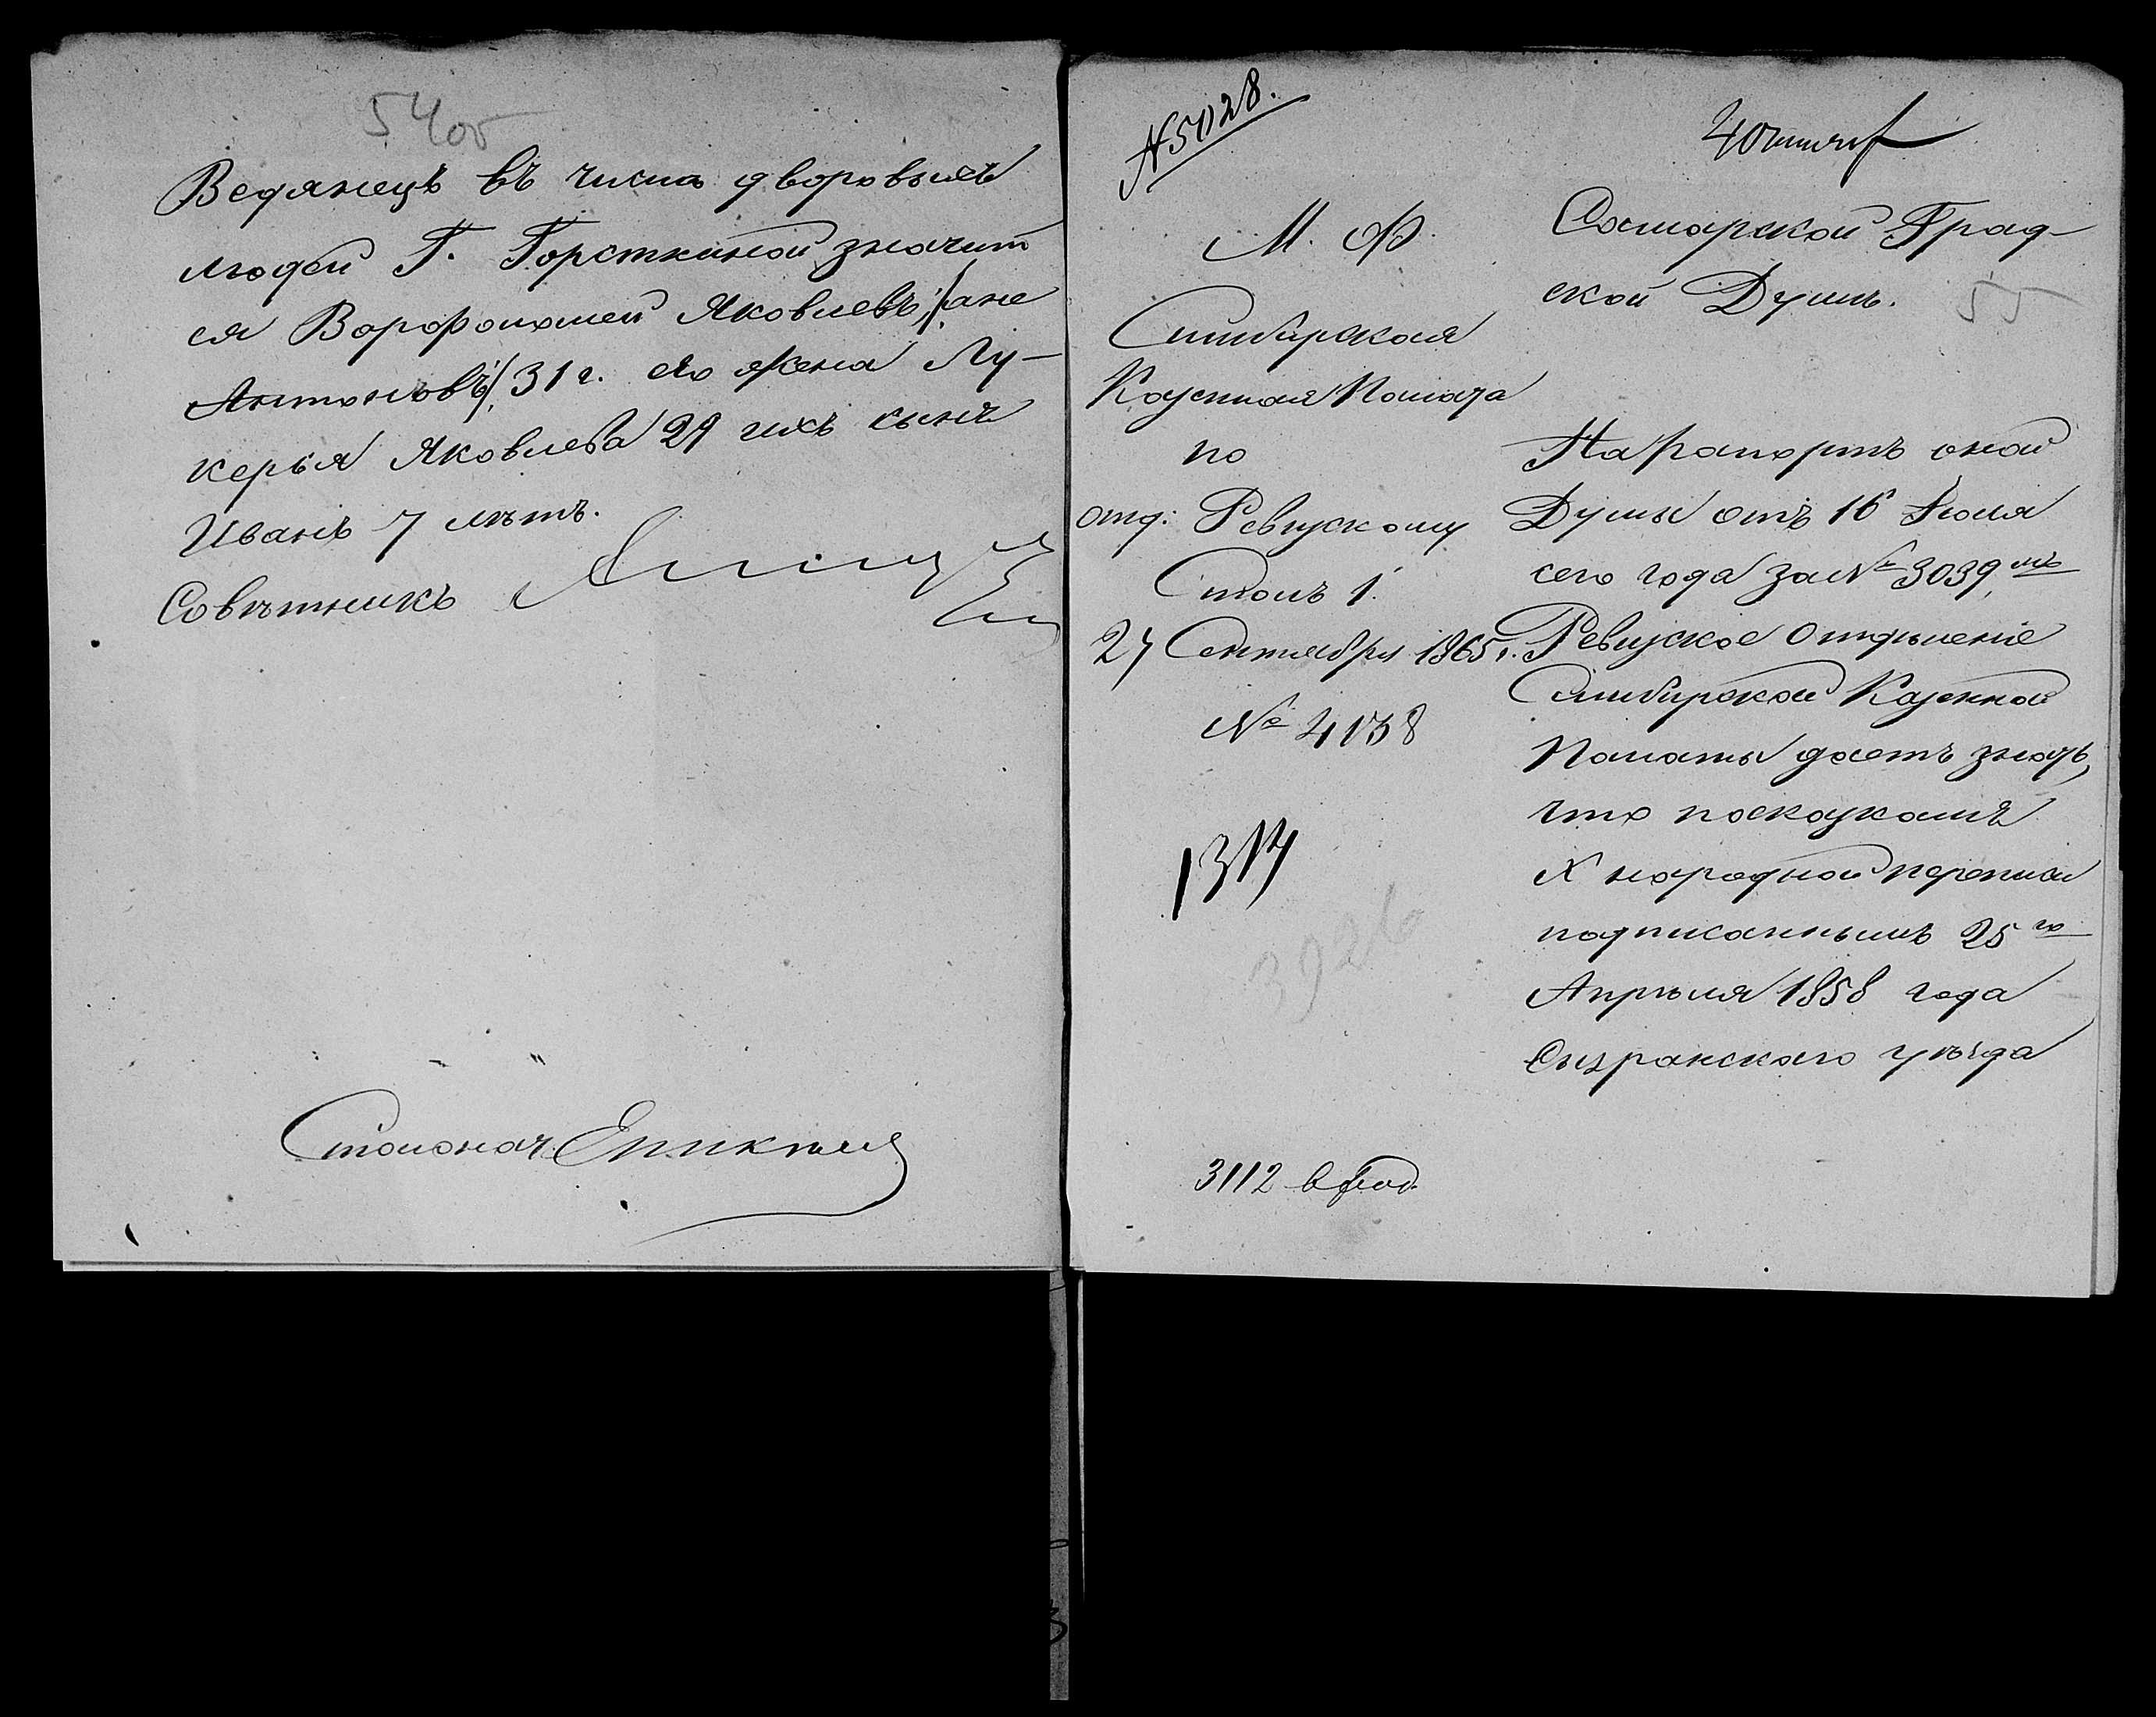 54об
Ведянецъ въ числа дворовыхъ
людей Г. Горсткиной значит
ся Ворфоломей Яковлевъ, /ане
Антоновъ/ 31 г. его жена Лу-
керья Яковлева 29 ихъ сынъ
Иванъ 7 лѣтъ.
Совѣтникъ
Столонач.
№ 5028.
М. Ф.
Симбирская
Казенная Палата
по
отд: Ревизскому
Столъ 1.
27 Сентября 1865 г.
№ 4138
1317
3926
3112
Самарской Град-
ской Думѣ.
55
На рапортъ оной
Думы отъ 16 Іюля
сего года за № 3039,
Ревизское Отдѣленіе
Симбирской Казенной
Палаты даетъ знать,
что поскаукамъ
X народной переписи
подписаннымъ 25 го
Апрѣля 1858 года
Сызранскаго уѣзда